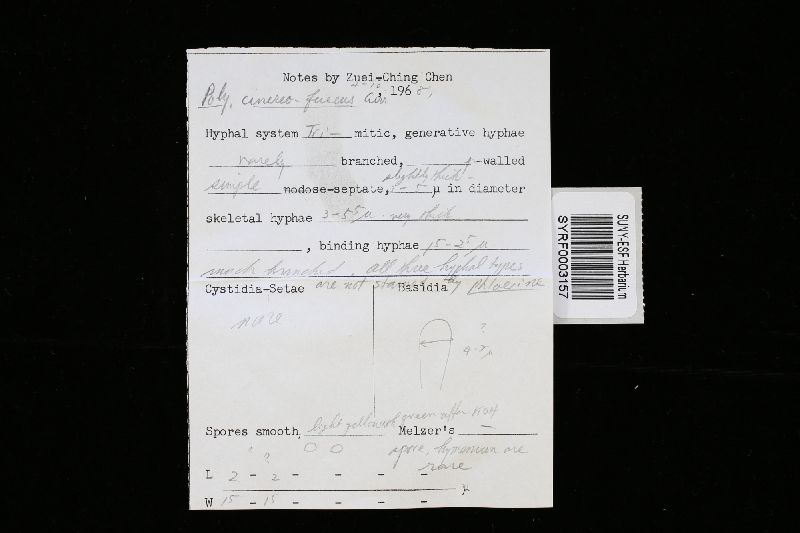 Notes by Zuei-Ching Chen
, 1968,
Poly. cinereo-fuscus
Hyphal system Tri- mitic, generative hyphae
rarely branched, -walled
slightly thick-
simple nodose-septate, μ in diameter
skeletal hyphae 3-5.5 μ. very thick
, binding hyphae 1.5-2.5 μ
much branched. all three hyphal types
are not stained by phloxine
Cystidia-Setae Basidia
none
?
4-5 μ
Spores smooth, light yellowish green after KOH
Melzer's -
spore, hymenium are
rare
?
L 2 - 2 - - - -
μ
W 1.5 - 1.5 - - - -
SUNY-ESF Herbarium
SYRF0003157